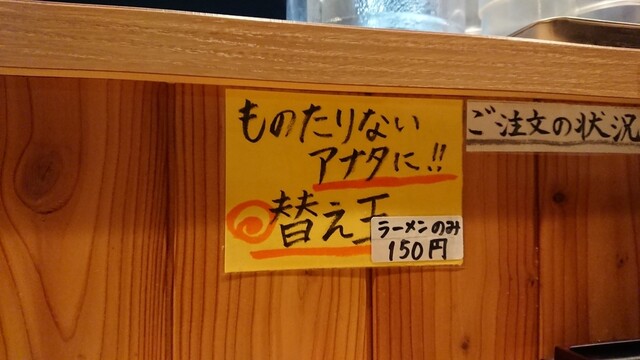 ものたりない
アナタに!!
替え玉
ラーメンのみ
150円
ご注文の状況